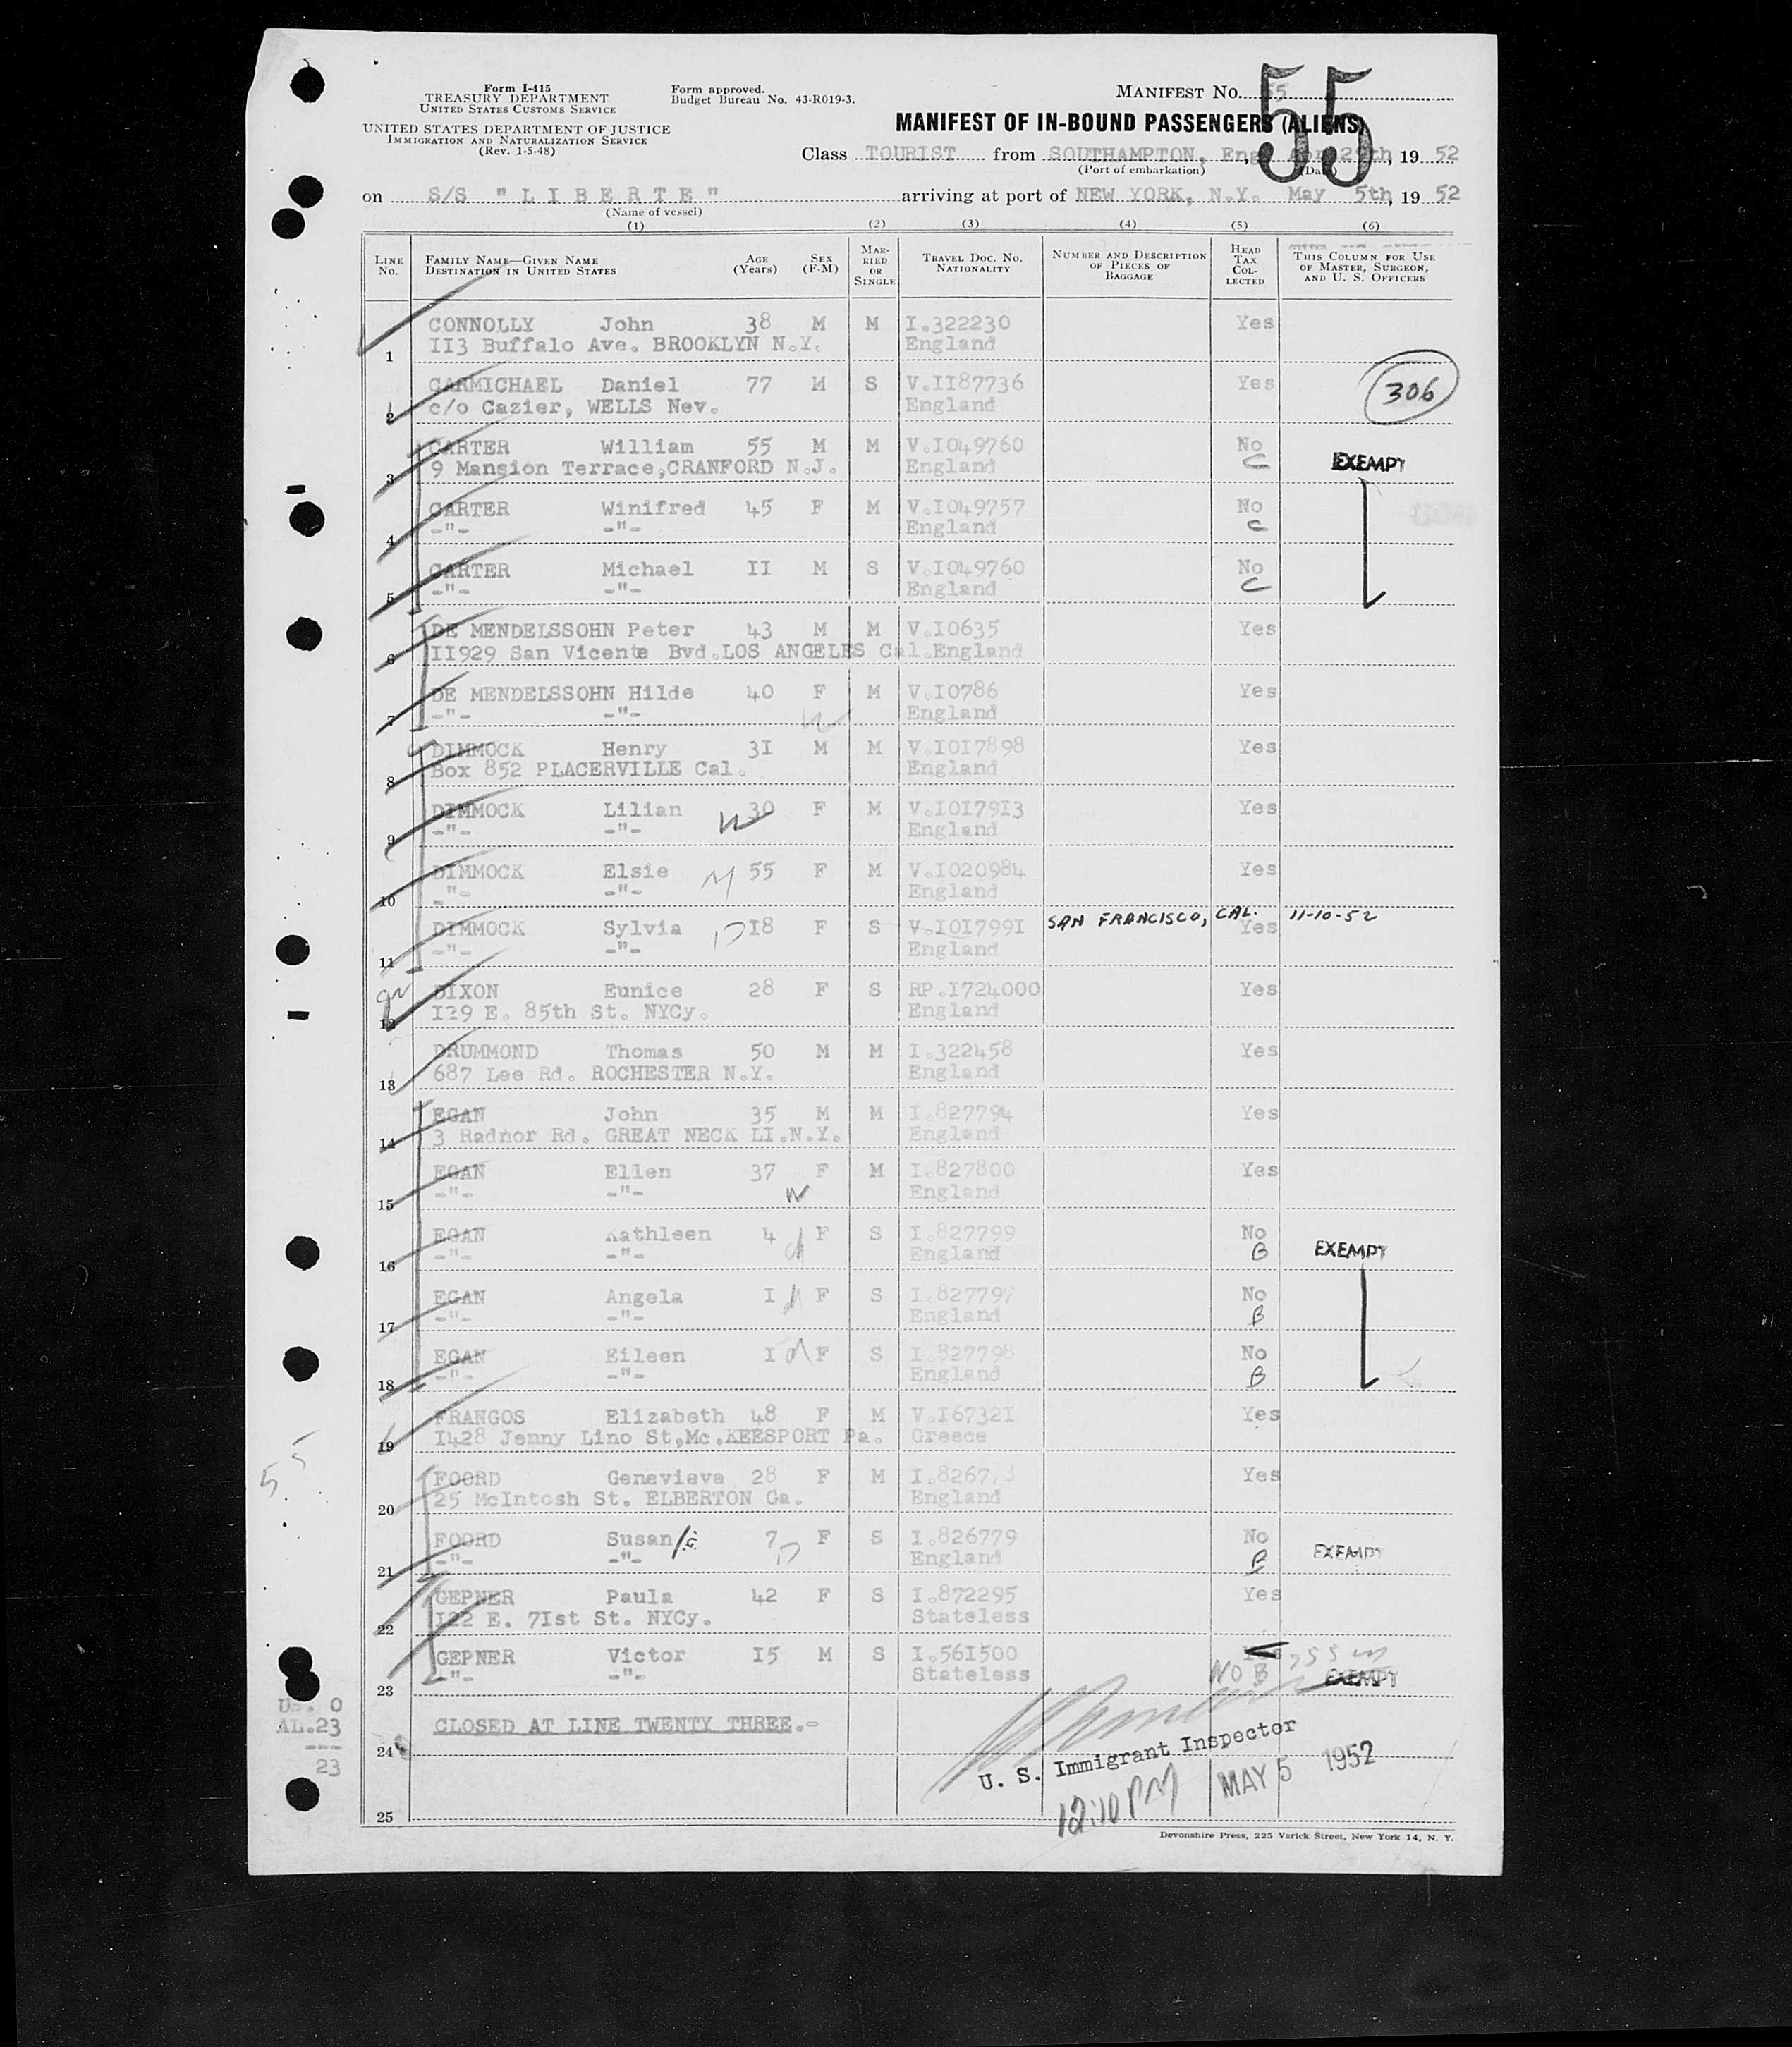 Form I-415
TREASURY DEPARTMENT
UNITED STATES CUSTOMS SERVICE
UNITED STATES DEPARTMENT OF JUSTICE
IMMIGRATION AND NATURALIZATION SERVICE
(Rev. 1-5-48)
Form approved.
Budget Bureau No. 43-R019-3.
MANIFEST NO. 55
55
MANIFEST OF IN-BOUND PASSENGERS (ALIENS)
Class TOURIST from SOUTHAMPTON, Eng, 19 52
(Port of embarkation) (Date)
on S/S "LIBERTE" arriving at port of NEW YORK, N.Y. May 5th, 19 52
(Name of vessel)
(1) (2) (3) (4) (5) (6)
LINE No. FAMILY NAME—GIVEN NAME DESTINATION IN UNITED STATES AGE (Years) SEX (F-M) MARRIED OR SINGLE TRAVEL DOC. NO. NATIONALITY NUMBER AND DESCRIPTION OF PIECES OF BAGGAGE HEAD TAX COLLECTED THIS COLUMN FOR USE OF MASTER, SURGEON, AND U. S. OFFICERS
CONNOLLY John 38 M M I.322230 Yes
1 II3 Buffalo Ave. BROOKLYN N.Y. England
CARMICHAEL Daniel 77 M S V.II87736 Yes 306
2 c/o Cazier, WELLS Nev. England
CARTER William 55 M M V.I049760 No
3 9 Mansion Terrace,CRANFORD N.J. England C EXEMPT
CARTER Winifred 45 F M V.I049757 No
4 -"- -"- England C
CARTER Michael II M S V.I049760 No
5 -"- -"- England C
DE MENDELSSOHN Peter 43 M M V.I0635 Yes
6 II929 San Vicente Bvd.LOS ANGELES Cal.England
DE MENDELSSOHN Hilde 40 F M V.I0786 Yes
7 -"- -"- England
DIMMOCK Henry 3I M M V.I0I7898 Yes
8 Box 852 PLACERVILLE Cal. England
DIMMOCK Lilian W 30 F M V.I0I79I3 Yes
9 -"- -"- England
DIMMOCK Elsie M 55 F M V.I020984 Yes
10 -"- -"- England
SAN FRANCISCO, CAL. 11-10-52
DIMMOCK Sylvia D I8 F S V.I0I799I Yes
11 -"- -"- England
DIXON Eunice 28 F S RP.I724000 Yes
12 I29 E. 85th St. NYCy. England
DRUMMOND Thomas 50 M M I.322458 Yes
13 687 Lee Rd. ROCHESTER N.Y. England
EGAN John 35 M M I.827794 Yes
14 3 Radnor Rd. GREAT NECK LI.N.Y. England
EGAN Ellen 37 F M I.827800 Yes
15 -"- -"- W England
EGAN Kathleen 4 d F S I.827799 No
16 -"- -"- England B EXEMPT
EGAN Angela I d F S I.827797 No
17 -"- -"- England B
EGAN Eileen I d F S I.827798 No
18 -"- -"- England B
FRANGOS Elizabeth 48 F M V.I6732I Yes
19 I428 Jenny Lino St,Mc.KEESPORT Pa. Greece
55
FOORD Genevieve 28 F M Yes
20 25 McIntosh St. ELBERTON Ga. England
FOORD Susan 7 F S I.826779 No
21 -"- -"- D England B EXEMPT
GEPNER Paula 42 F S I.872295 Yes
22 I22 E. 7Ist St. NYCy. Stateless
GEPNER Victor I5 M S I.56I500
23 -"- -"- Stateless NO B EXEMPT
US. 0
AL.23
---
23
CLOSED AT LINE TWENTY THREE.-
24
U. S. Immigrant Inspector
12:10 PM MAY 5 1952
25
Devonshire Press, 225 Varick Street, New York 14, N. Y.